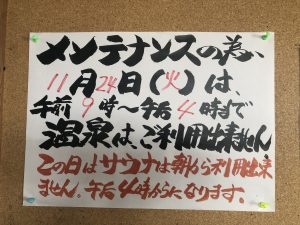 メンテナンスの為、
11月24日(火)は、
午前9時〜午后4時まで
温泉は、ご利用出来ません
この日はサウナは朝から利用出来
ません。午后4時からになります。